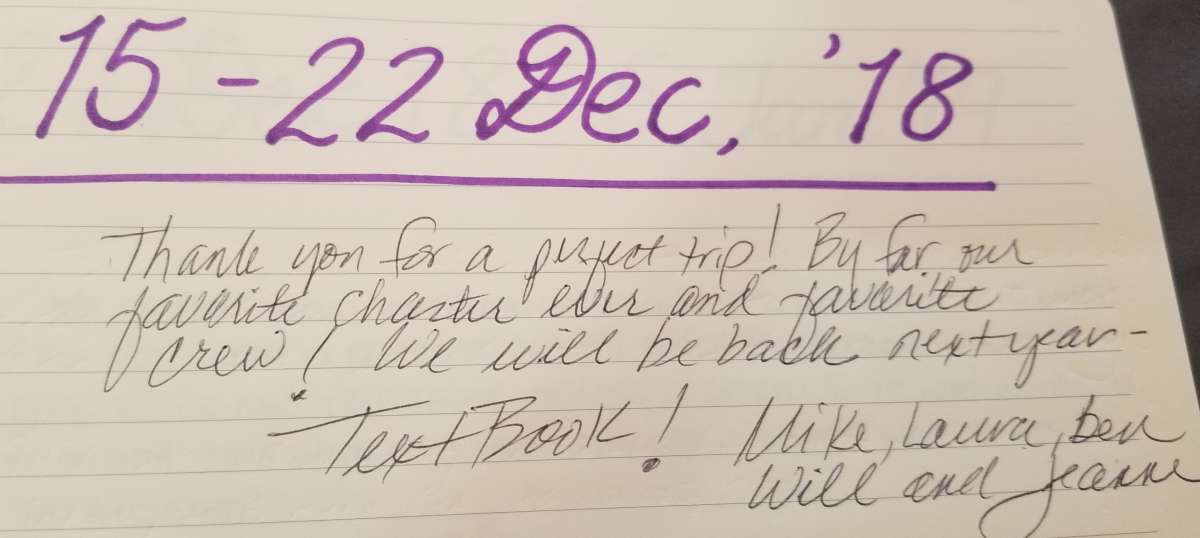 15-22 Dec, '18
Thank you for a perfect trip! By far our
favorite charter ever and favorite
crew! We will be back next year-
TextBook! Mike, Laura, Ben
Will and Jeanne